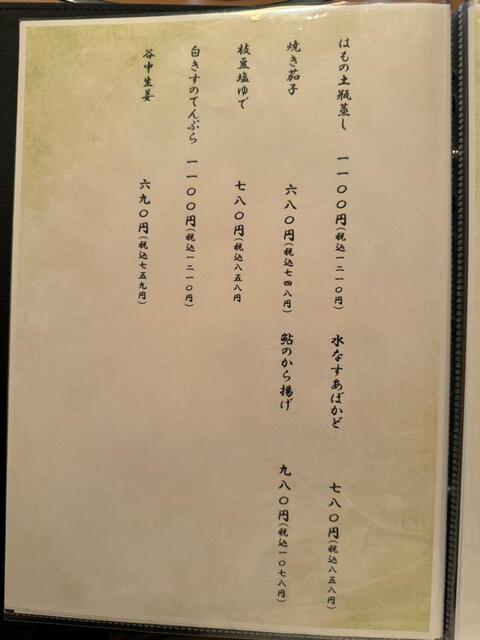 はもの土瓶蒸し 一一〇〇円(税込一二一〇円)
焼き茄子 六八〇円(税込七四八円)
枝豆塩ゆで 七八〇円(税込八五八円
白きすのてんぷら 一一〇〇円(税込一二一〇円)
谷中生姜 六九〇円(税込七五九円)
水なすあぼかど 七八〇円(税込八五八円)
鮎のから揚げ 九八〇円(税込一〇七八円)